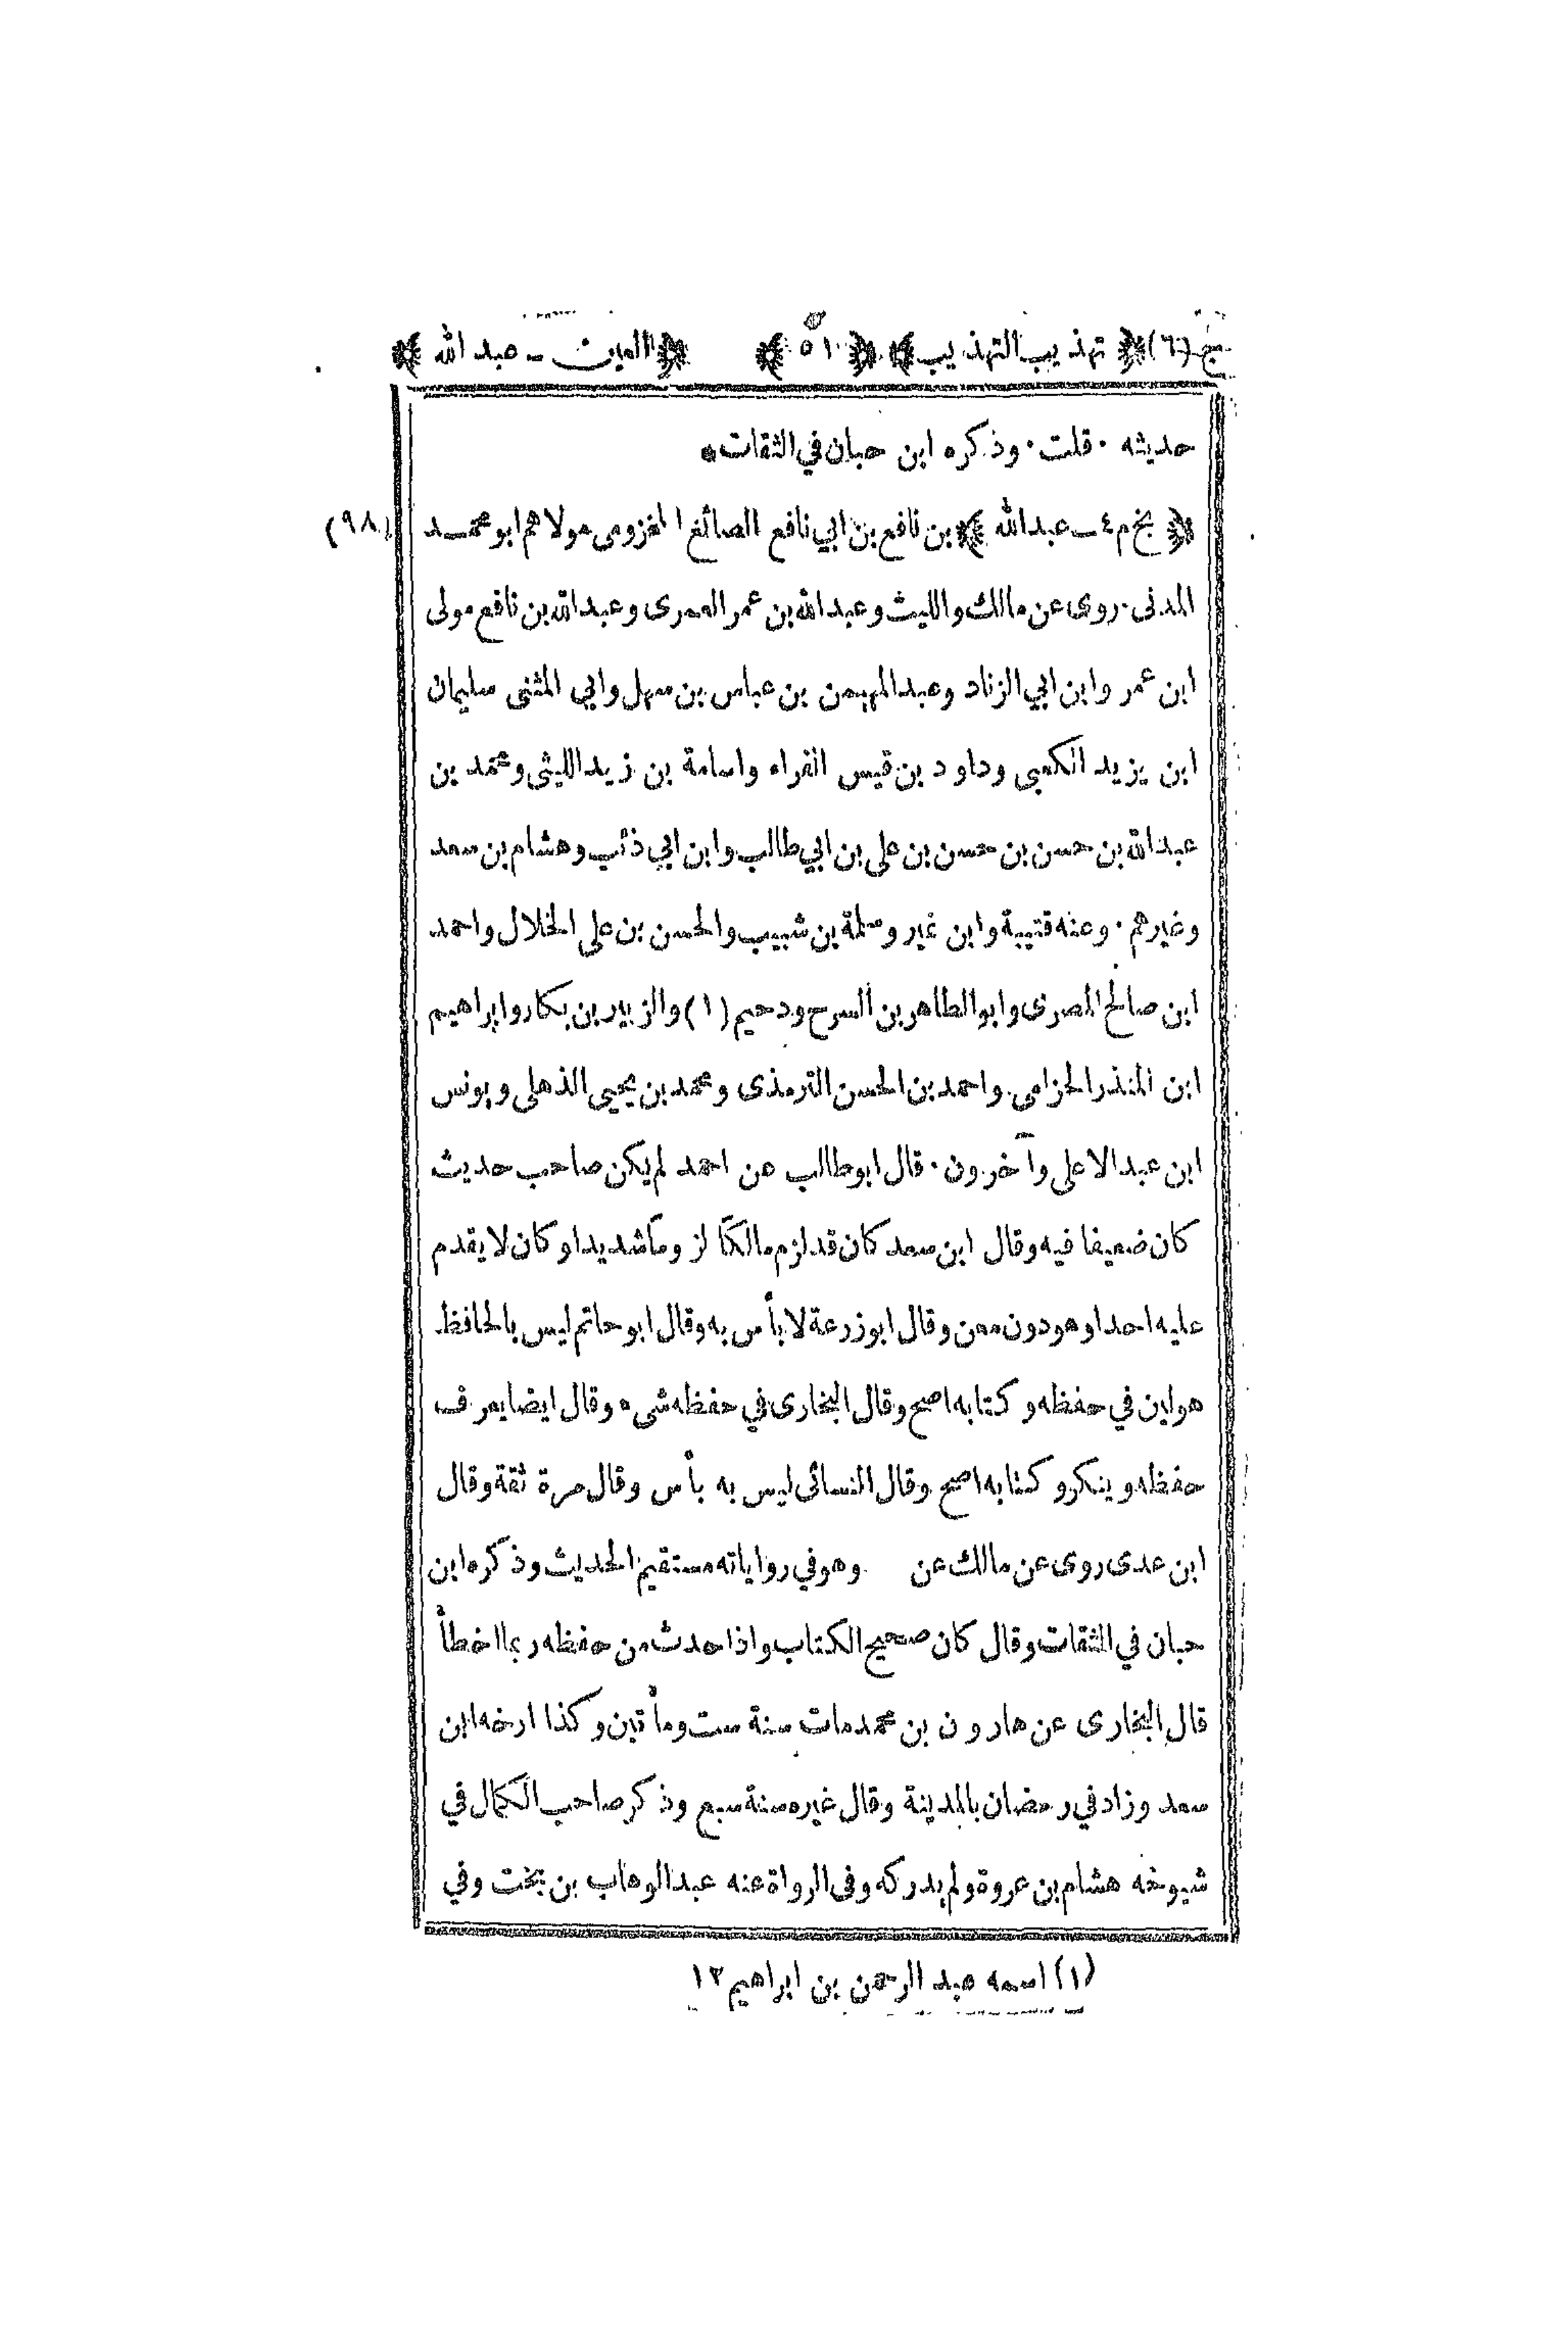 ج (٦) ﴿ تهذيب التهذيب ﴾ ﴿ ٥١ ﴾ ﴿ العين - عبد الله ﴾
حديثه · قلت · وذكره ابن حبان في الثقات
﴿ بخ م ٤ ـ عبد الله ﴾ بن نافع بن ابي نافع الصائغ المخزومى مولاهم ابو محمد (٩٨)
المدنى · روى عن مالك والليث وعبد الله بن عمر العمرى وعبد الله بن نافع مولى
ابن عمر وابن ابي الزناد وعبد المهيمن بن عباس بن سهل وابي المثنى سليمان
ابن يزيد الكعبى وداود بن قيس الفراء واسامة بن زيد الليثى ومحمد بن
عبد الله بن حسن بن حسن بن على بن ابي طالب وابن ابي ذئب وهشام بن سعد
وغيرهم · وعنه قتيبة وابن نمير وسلمة بن شبيب والحسن بن على الخلال واحمد
ابن صالح المصرى وابو الطاهر بن السرح ودحيم (١) والزبير بن بكار وابراهيم
ابن المنذر الحزامى واحمد بن الحسن الترمذى ومحمد بن يحيى الذهلى ويونس
ابن عبد الاعلى وآخرون · قال ابو طالب عن احمد لم يكن صاحب حديث
كان ضعيفا فيه وقال ابن سعد كان قد لزم مالكا لزوما شديدا وكان لا يقدم
عليه احدا وهو دون معن وقال ابو زرعة لا بأس به وقال ابو حاتم ليس بالحافظ
هو لين في حفظه وكتابه اصح وقال البخارى في حفظه شىء وقال ايضا يعرف
حفظه وينكر وكتابه اصح وقال النسائى ليس به بأس وقال مرة ثقة وقال
ابن عدى روى عن مالك عن وهو في رواياته مستقيم الحديث وذكره ابن
حبان في الثقات وقال كان صحيح الكتاب واذا حدث من حفظه ربما اخطأ
قال البخارى عن هارون بن محمد مات سنة ست ومأتين وكذا ارخه ابن
سعد وزاد في رمضان بالمدينة وقال غيره سنة سبع وذكر صاحب الكمال في
شيوخه هشام بن عروة ولم يدركه وفى الرواة عنه عبد الوهاب بن بخت وفي
(١) اسمه عبد الرحمن بن ابراهيم ١٢